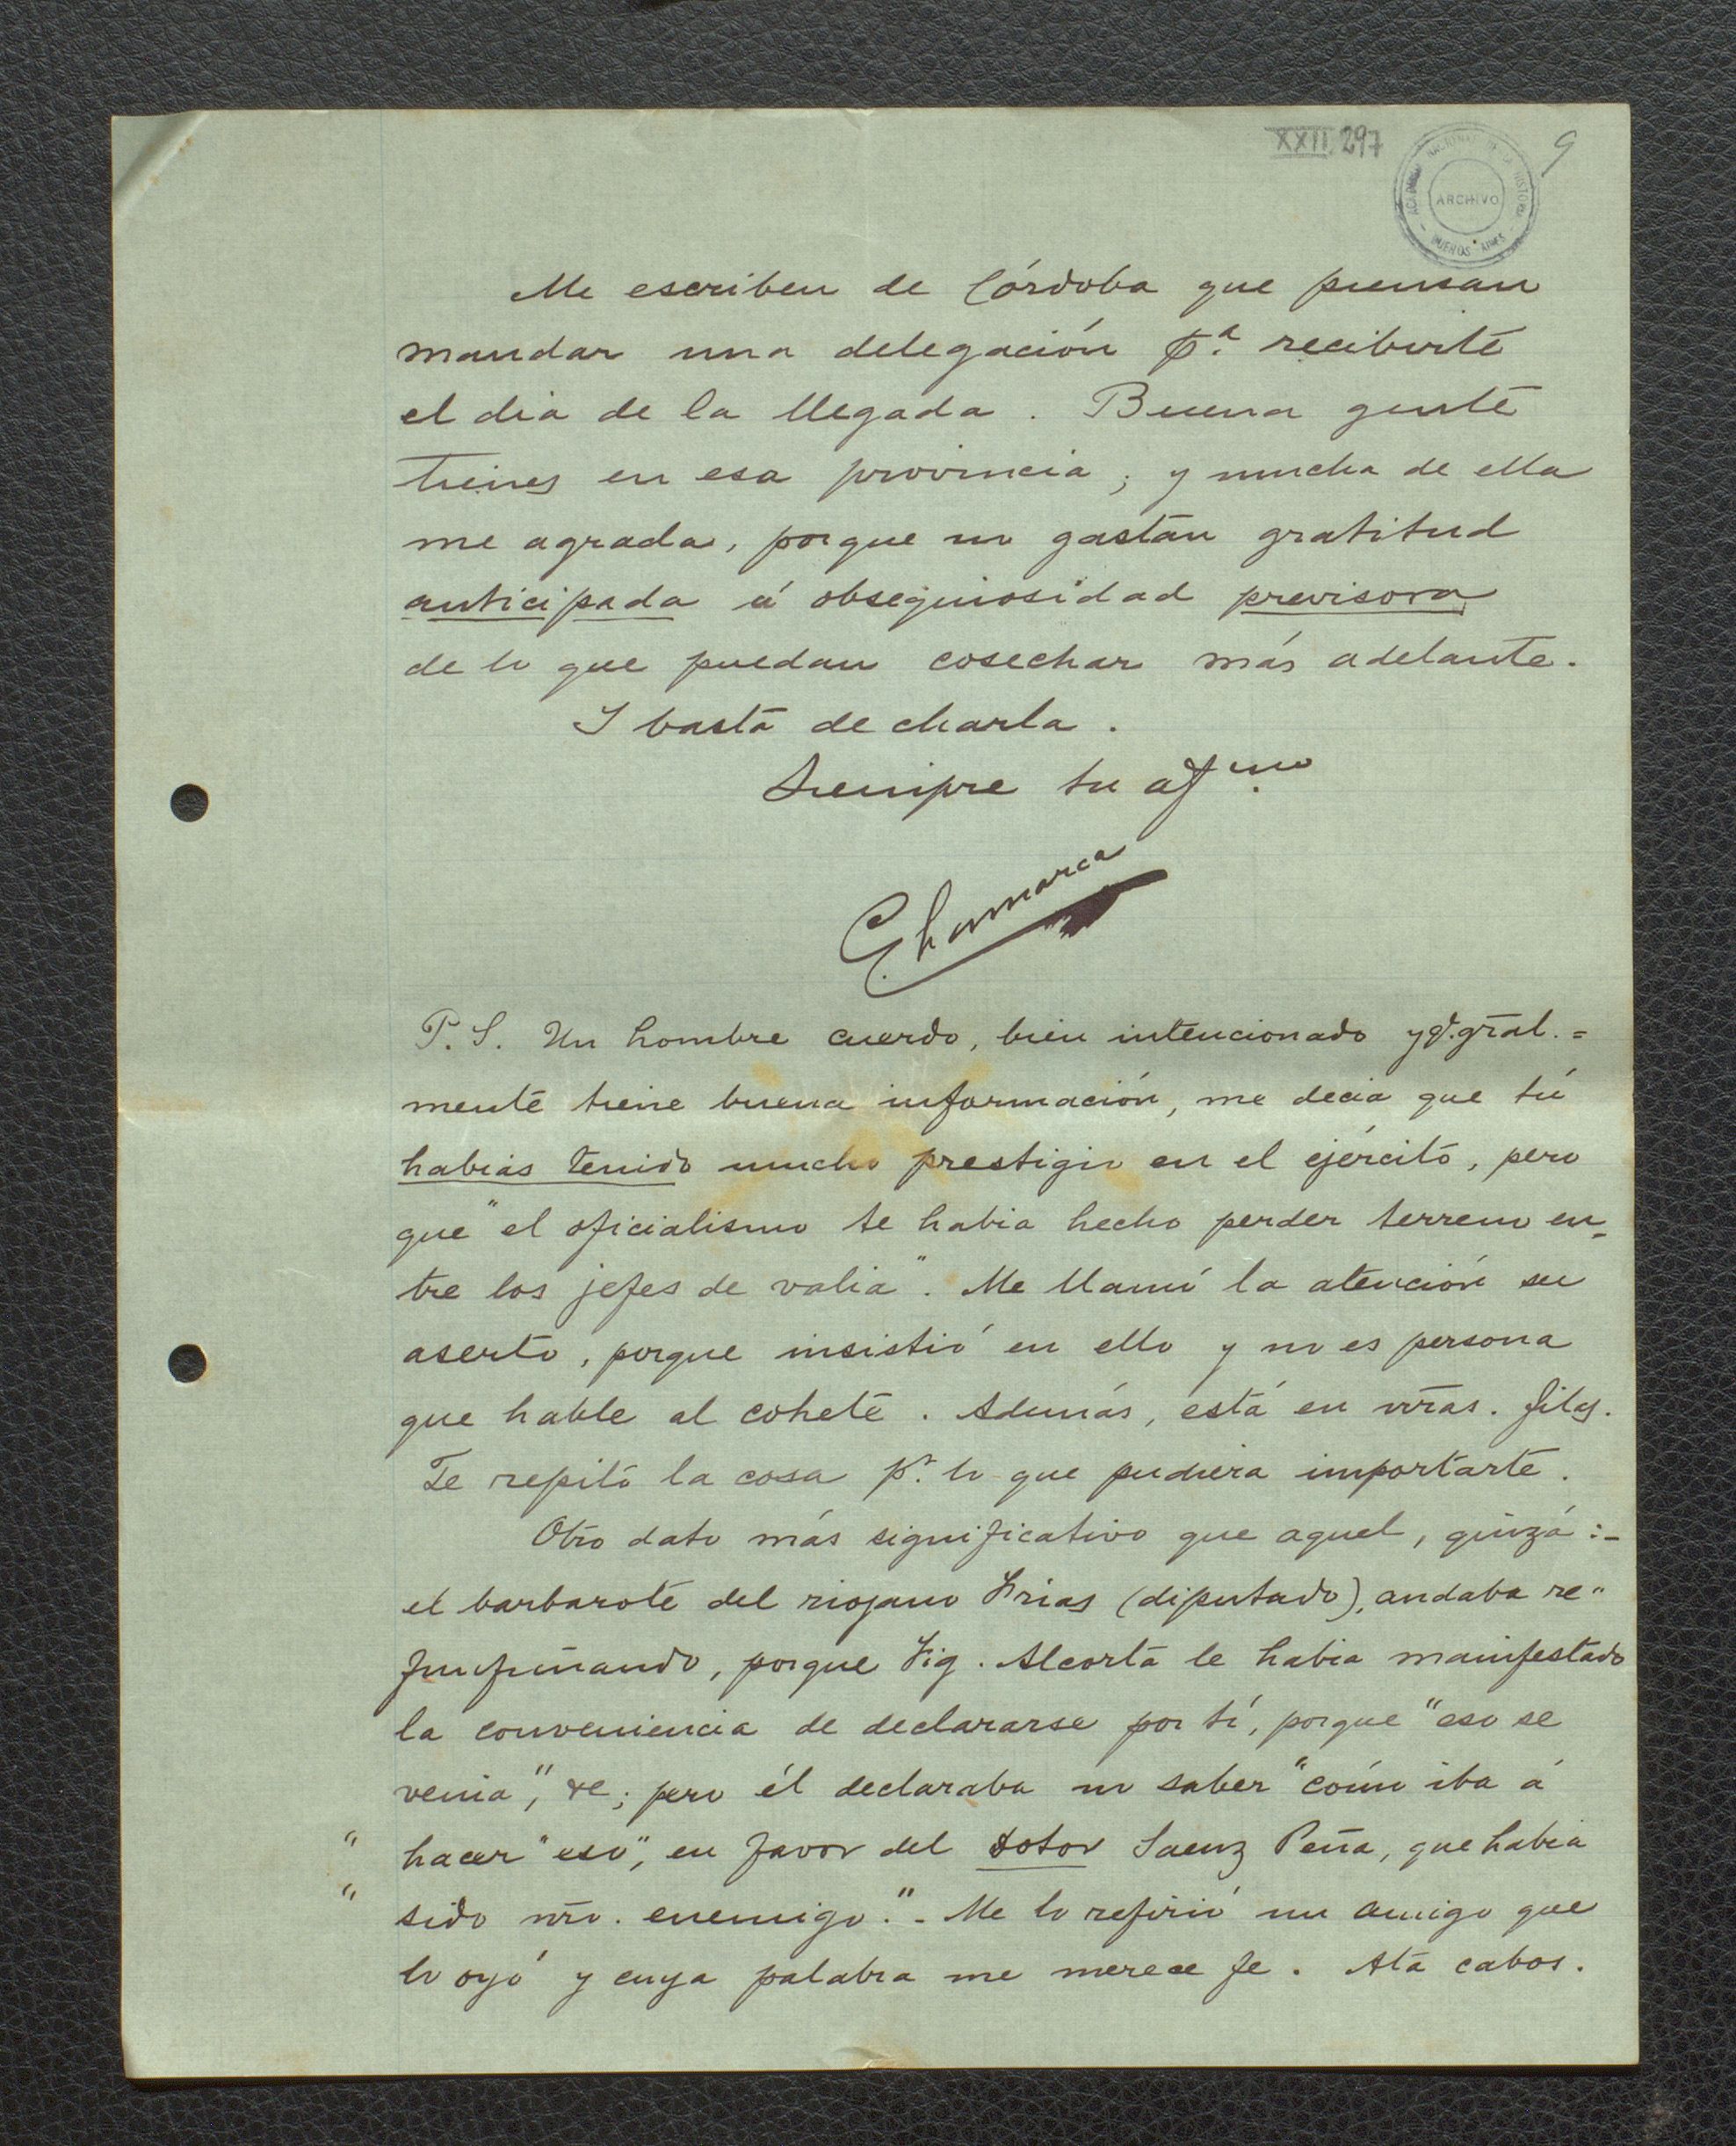 XXII, 297
9
ACADEMIA NACIONAL DE LA HISTORIA
ARCHIVO
BUENOS AIRES
Me escriben de Córdoba que piensan
mandar una delegación pª. recibirte
el dia de la llegada. Buena gente
tienes en esa provincia; y mucha de ella
me agrada, porque no gastan gratitud
anticipada ú obsequiosidad previsora
de lo que puedan cosechar más adelante.
Y basta de charla.
Siempre tu afmo.
P. S. Un hombre cuerdo, bien intencionado y q. gral.=
mente tiene buena información, me decia que tú
habias tenido mucho prestigio en el ejército, pero
que "el oficialismo te habia hecho perder terreno en-
tre los jefes de valia". Me llamó la atención su
aserto, porque insistió en ello y no es persona
que hable al cohete. Además, está en nras. filas.
Te repito la cosa pr. lo que pudiera importarte.
Otro dato más significativo que aquel, quizá:-
el barbarote del riojano Frias (diputado), andaba re"
funfuñando, porque Fig. Alcorta le habia manifestado
la conveniencia de declararse por tí, porque "eso se
venia", &c; pero él declaraba no saber "cómo iba á
" hacer "eso", en favor del dotor Saenz Peña, que habia
" sido nro. enemigo."- Me lo refirió un amigo que
lo oyó y cuya palabra me merece fe. Ata cabos.